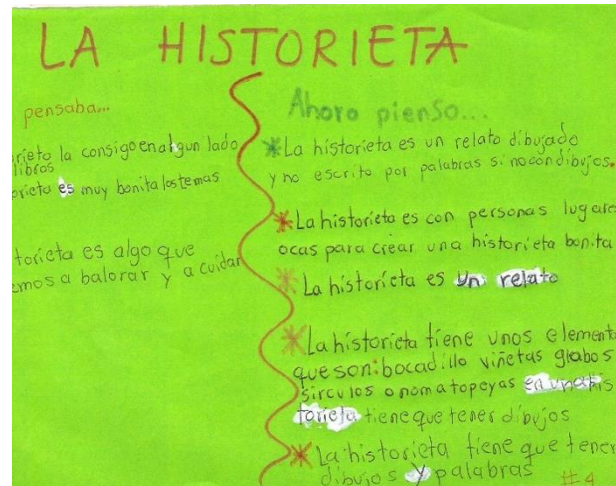 LA HISTORIETA
pensaba...
rieta la consigo en algun lado
libros
orieta es muy bonita los temas
torieta es algo que
emos a balorar y a cuidar
Ahora pienso...
La historieta es un relato dibujado
y no escrito por palabras si no con dibujos.
La historieta es con personas lugare
ocas para crear una historieta bonita
La historieta es un relato
La historieta tiene unos elemento
que son: bocadillo viñetas glabos
sirculos onomatopeyas en una his
torieta tiene que tener dibujos
La historieta tiene que tener
dibujos y palabras #4